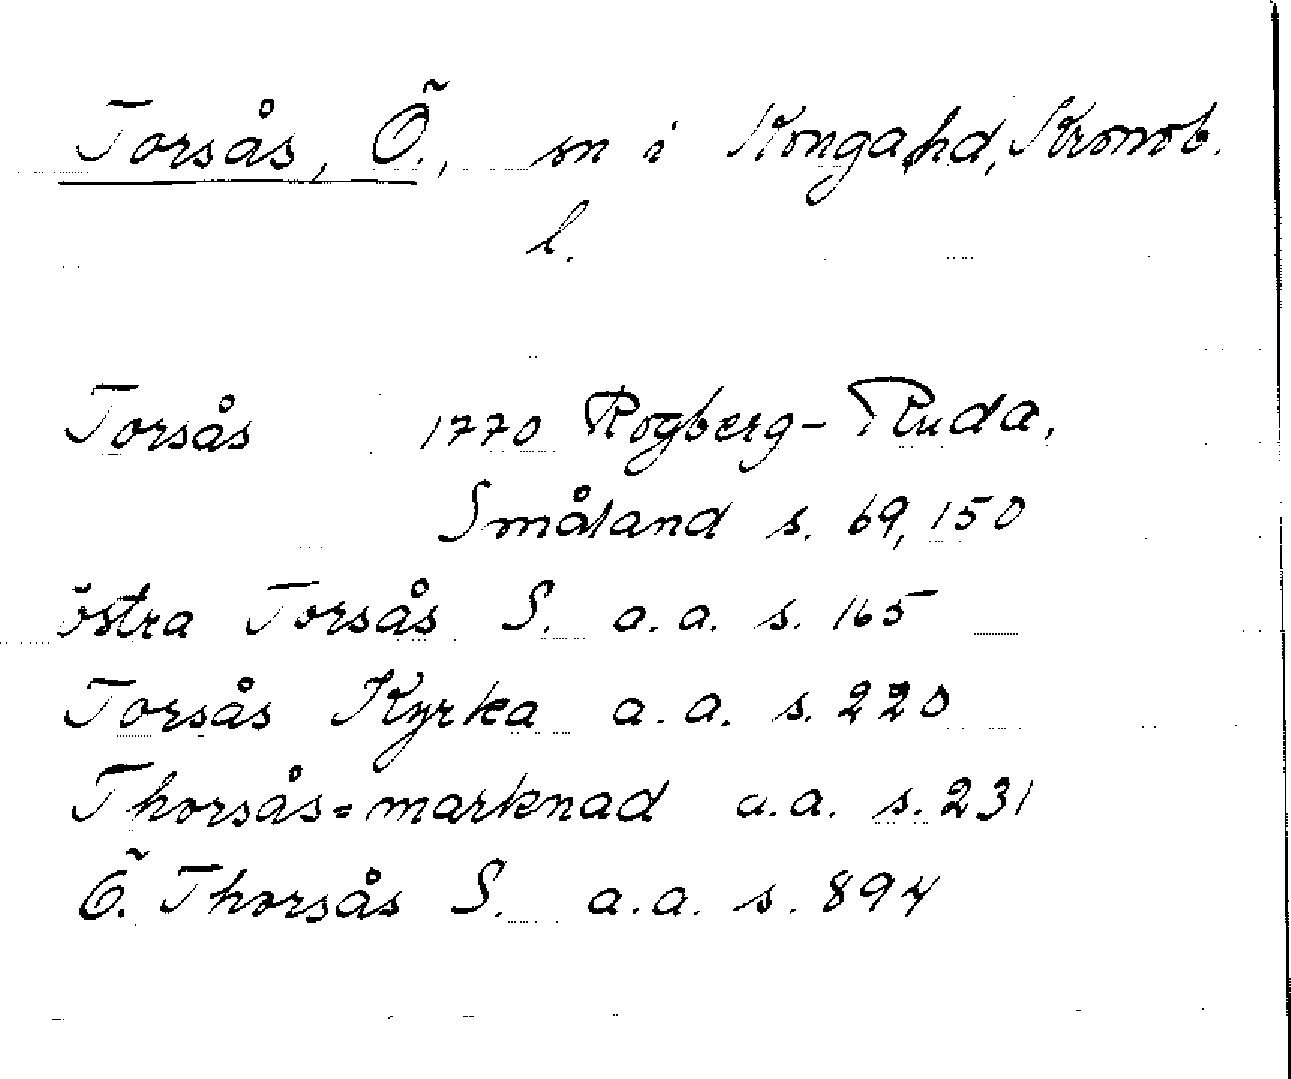 Torsås, Ö., sn i Konga hd, Kronob.
l.
Torsås 1770 Rogberg-Ruda,
Småland s. 69, 150
östra Torsås S. a.a. s. 165
Torsås Kyrka a.a. s. 220
Thorsås=marknad a.a. s. 231
Ö. Thorsås S. a.a. s. 894